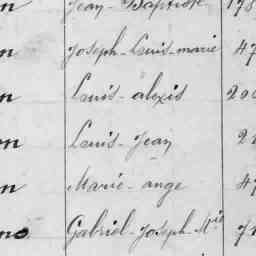 n Jean-Baptiste 178
n Joseph-Louis-marie 47
n Louis-alexis 200
on Louis-Jean 2
n Marie-ange 47
no Gabriel-Joseph-Mie 71